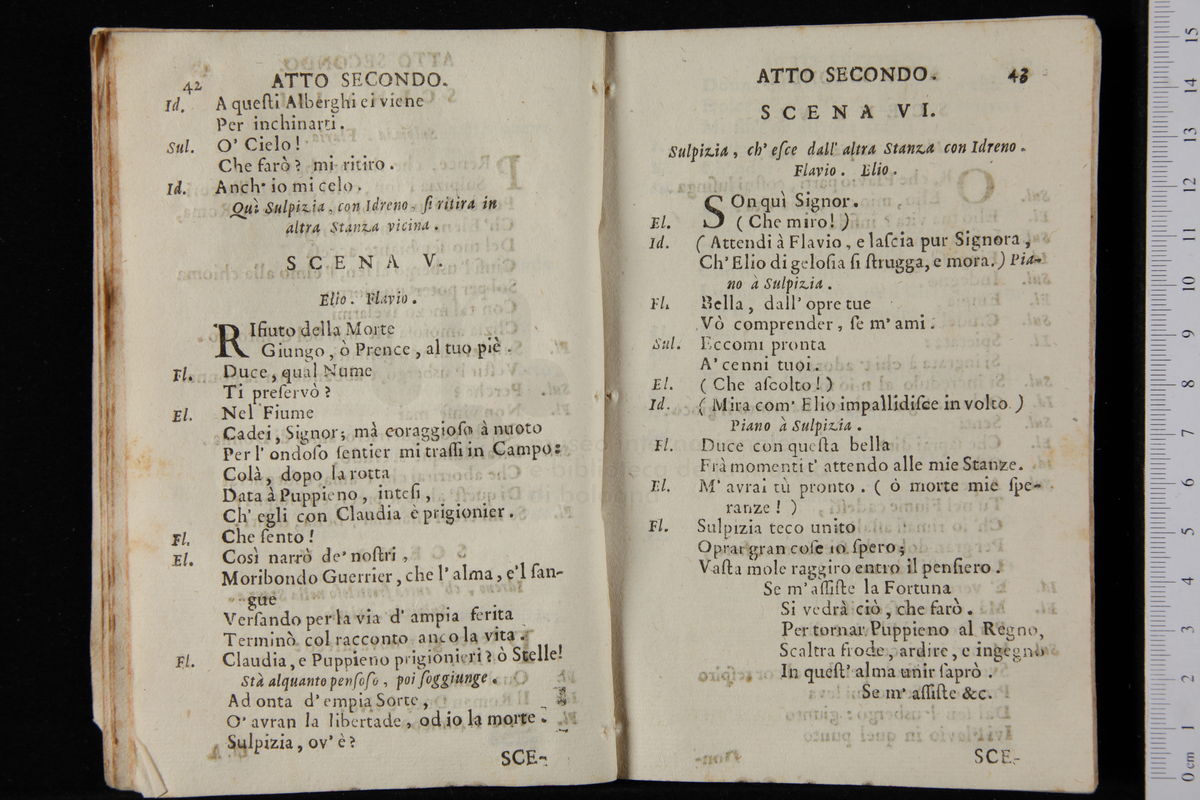 42
ATTO SECONDO.
Id. A questi Alberghi ei viene
Per inchinarti.
Sul. O' Cielo!
Che farò? mi ritiro.
Id. Anch' io mi celo.
Quì Sulpizia, con Idreno, si ritira in
altra Stanza vicina.
SCENA V.
Elio. Flavio.
RIfiuto della Morte
Giungo, ò Prence, al tuo piè.
Fl. Duce, qual Nume
Ti preservò?
El. Nel Fiume
Cadei, Signor; mà coraggioso à nuoto
Per l' ondoso sentier mi trassi in Campo:
Colà, dopo la rotta
Data à Puppieno, intesi,
Ch' egli con Claudia è prigionier.
Fl. Che sento!
El. Così narrò de' nostri,
Moribondo Guerrier, che l' alma, e'l san-
gue
Versando per la via d' ampia ferita
Terminò col racconto anco la vita.
Fl. Claudia, e Puppieno prigionieri? ò Stelle!
Stà alquanto pensoso, poi soggiunge.
Ad onta d' empia Sorte,
O' avran la libertade, od io la morte.
Sulpizia, ov' è?
SCE-
ATTO SECONDO. 43
SCENA VI.
Sulpizia, ch' esce dall' altra Stanza con Idreno.
Flavio. Elio.
SOn quì Signor.
El. (Che miro!)
Id. (Attendi à Flavio, e lascia pur Signora,
Ch' Elio di gelosia si strugga, e mora.) Pia-
no à Sulpizia.
Fl. Bella, dall' opre tue
Vò comprender, se m' ami.
Sul. Eccomi pronta
A' cenni tuoi.
El. (Che ascolto!)
Id. (Mira com' Elio impallidisce in volto.)
Piano à Sulpizia.
Fl. Duce con questa bella
Frà momenti t' attendo alle mie Stanze.
El. M' avrai tù pronto. (ò morte mie spe-
ranze!)
Fl. Sulpizia teco unito
Oprar gran cose io spero;
Vasta mole raggiro entro il pensiero.
Se m' assiste la Fortuna
Si vedrà ciò, che farò.
Per tornar Puppieno al Regno,
Scaltra frode, ardire, e ingegno
In quest' alma unir saprò.
Se m' assiste &c.
SCE-
0 cm 1 2 3 4 5 6 7 8 9 10 11 12 13 14 15